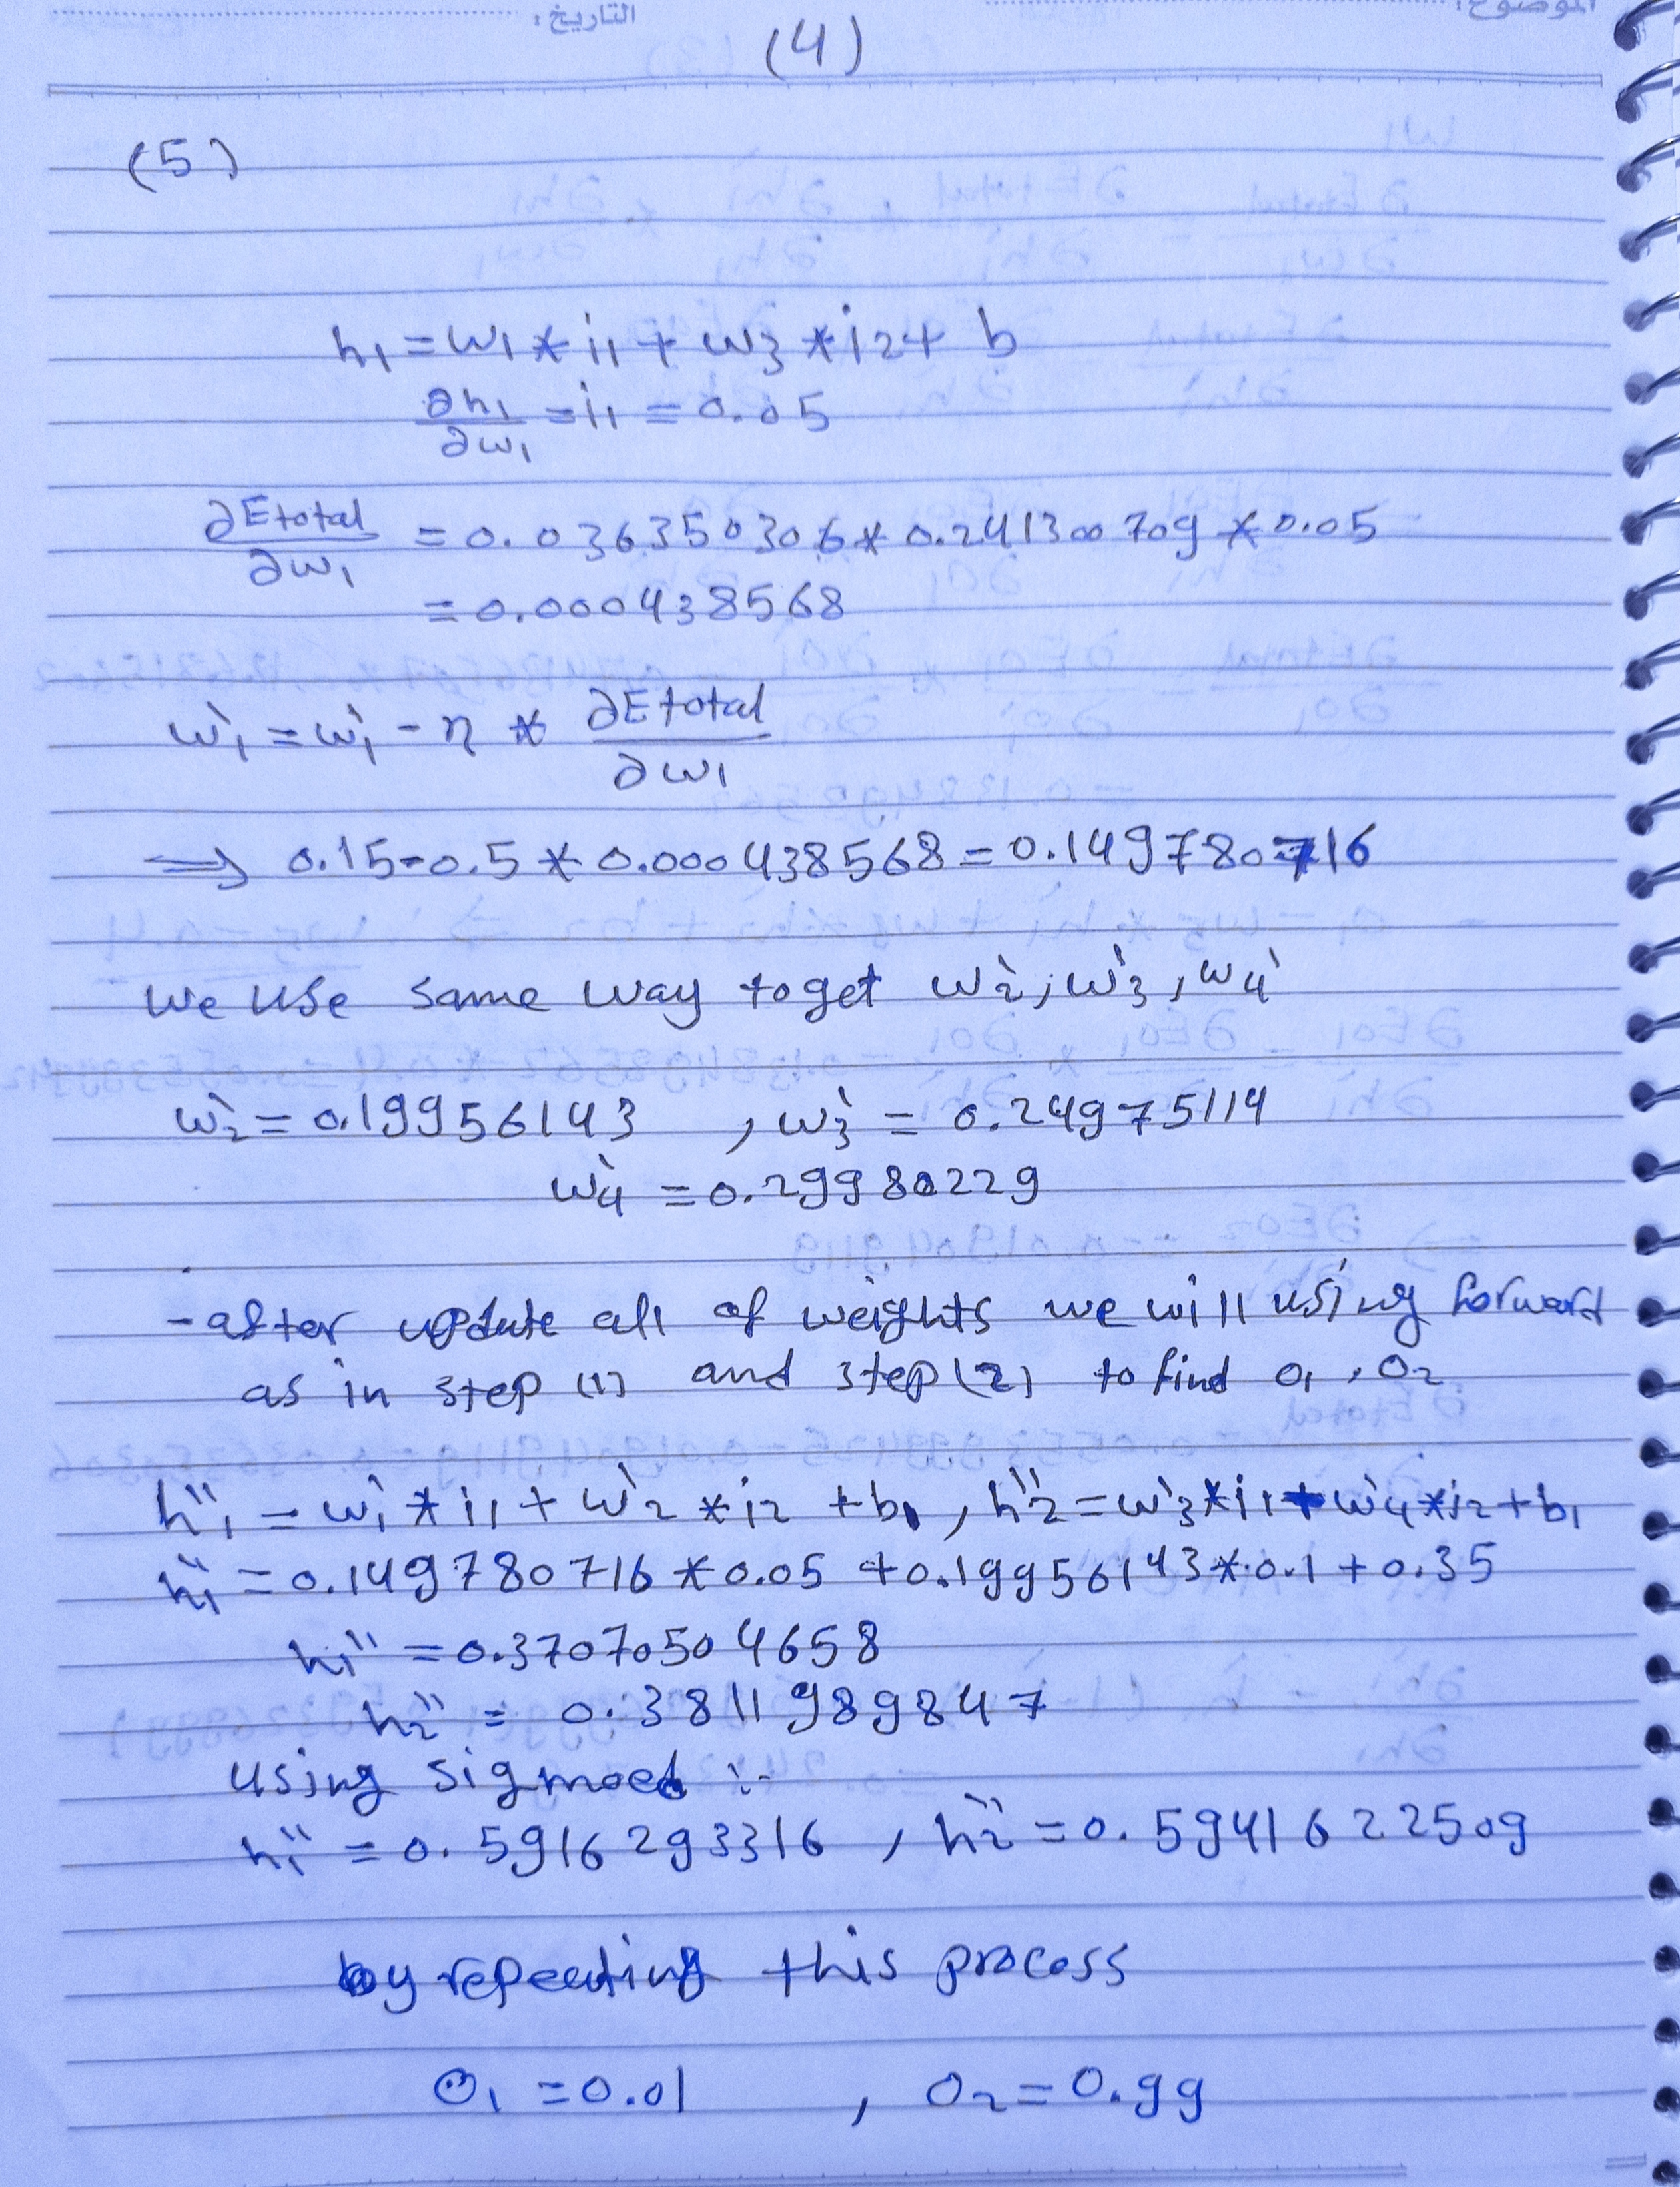 التاريخ: الموضوع:
(4)
(5)
h₁ = w₁ * i₁ + w₃ * i₂ + b
∂h₁/∂w₁ = i₁ = 0.05
∂Etotal/∂w₁ = 0.036350306 * 0.241300709 * 0.05
= 0.000438568
w₁` = w₁` - η * ∂Etotal/∂w₁
⇒ 0.15 - 0.5 * 0.000438568 = 0.149780716
we use same way to get w₂`, w₃`, w₄`
w₂` = 0.19956143 , w₃` = 0.24975114
w₄` = 0.29980229
- after update all of weights we will using forward
as in step (1) and step (2) to find o₁, o₂
h₁`` = w₁` * i₁ + w₂` * i₂ + b₁, h₂`` = w₃` * i₁ + w₄` * i₂ + b₁
h₁`` = 0.149780716 * 0.05 + 0.19956143 * 0.1 + 0.35
h₁`` = 0.37070504658
h₂`` = 0.3811989847
using sigmoed :-
h₁`` = 0.5916293316 , h₂`` = 0.5941622509
by repeating this process
O₁ = 0.01 , O₂ = 0.99